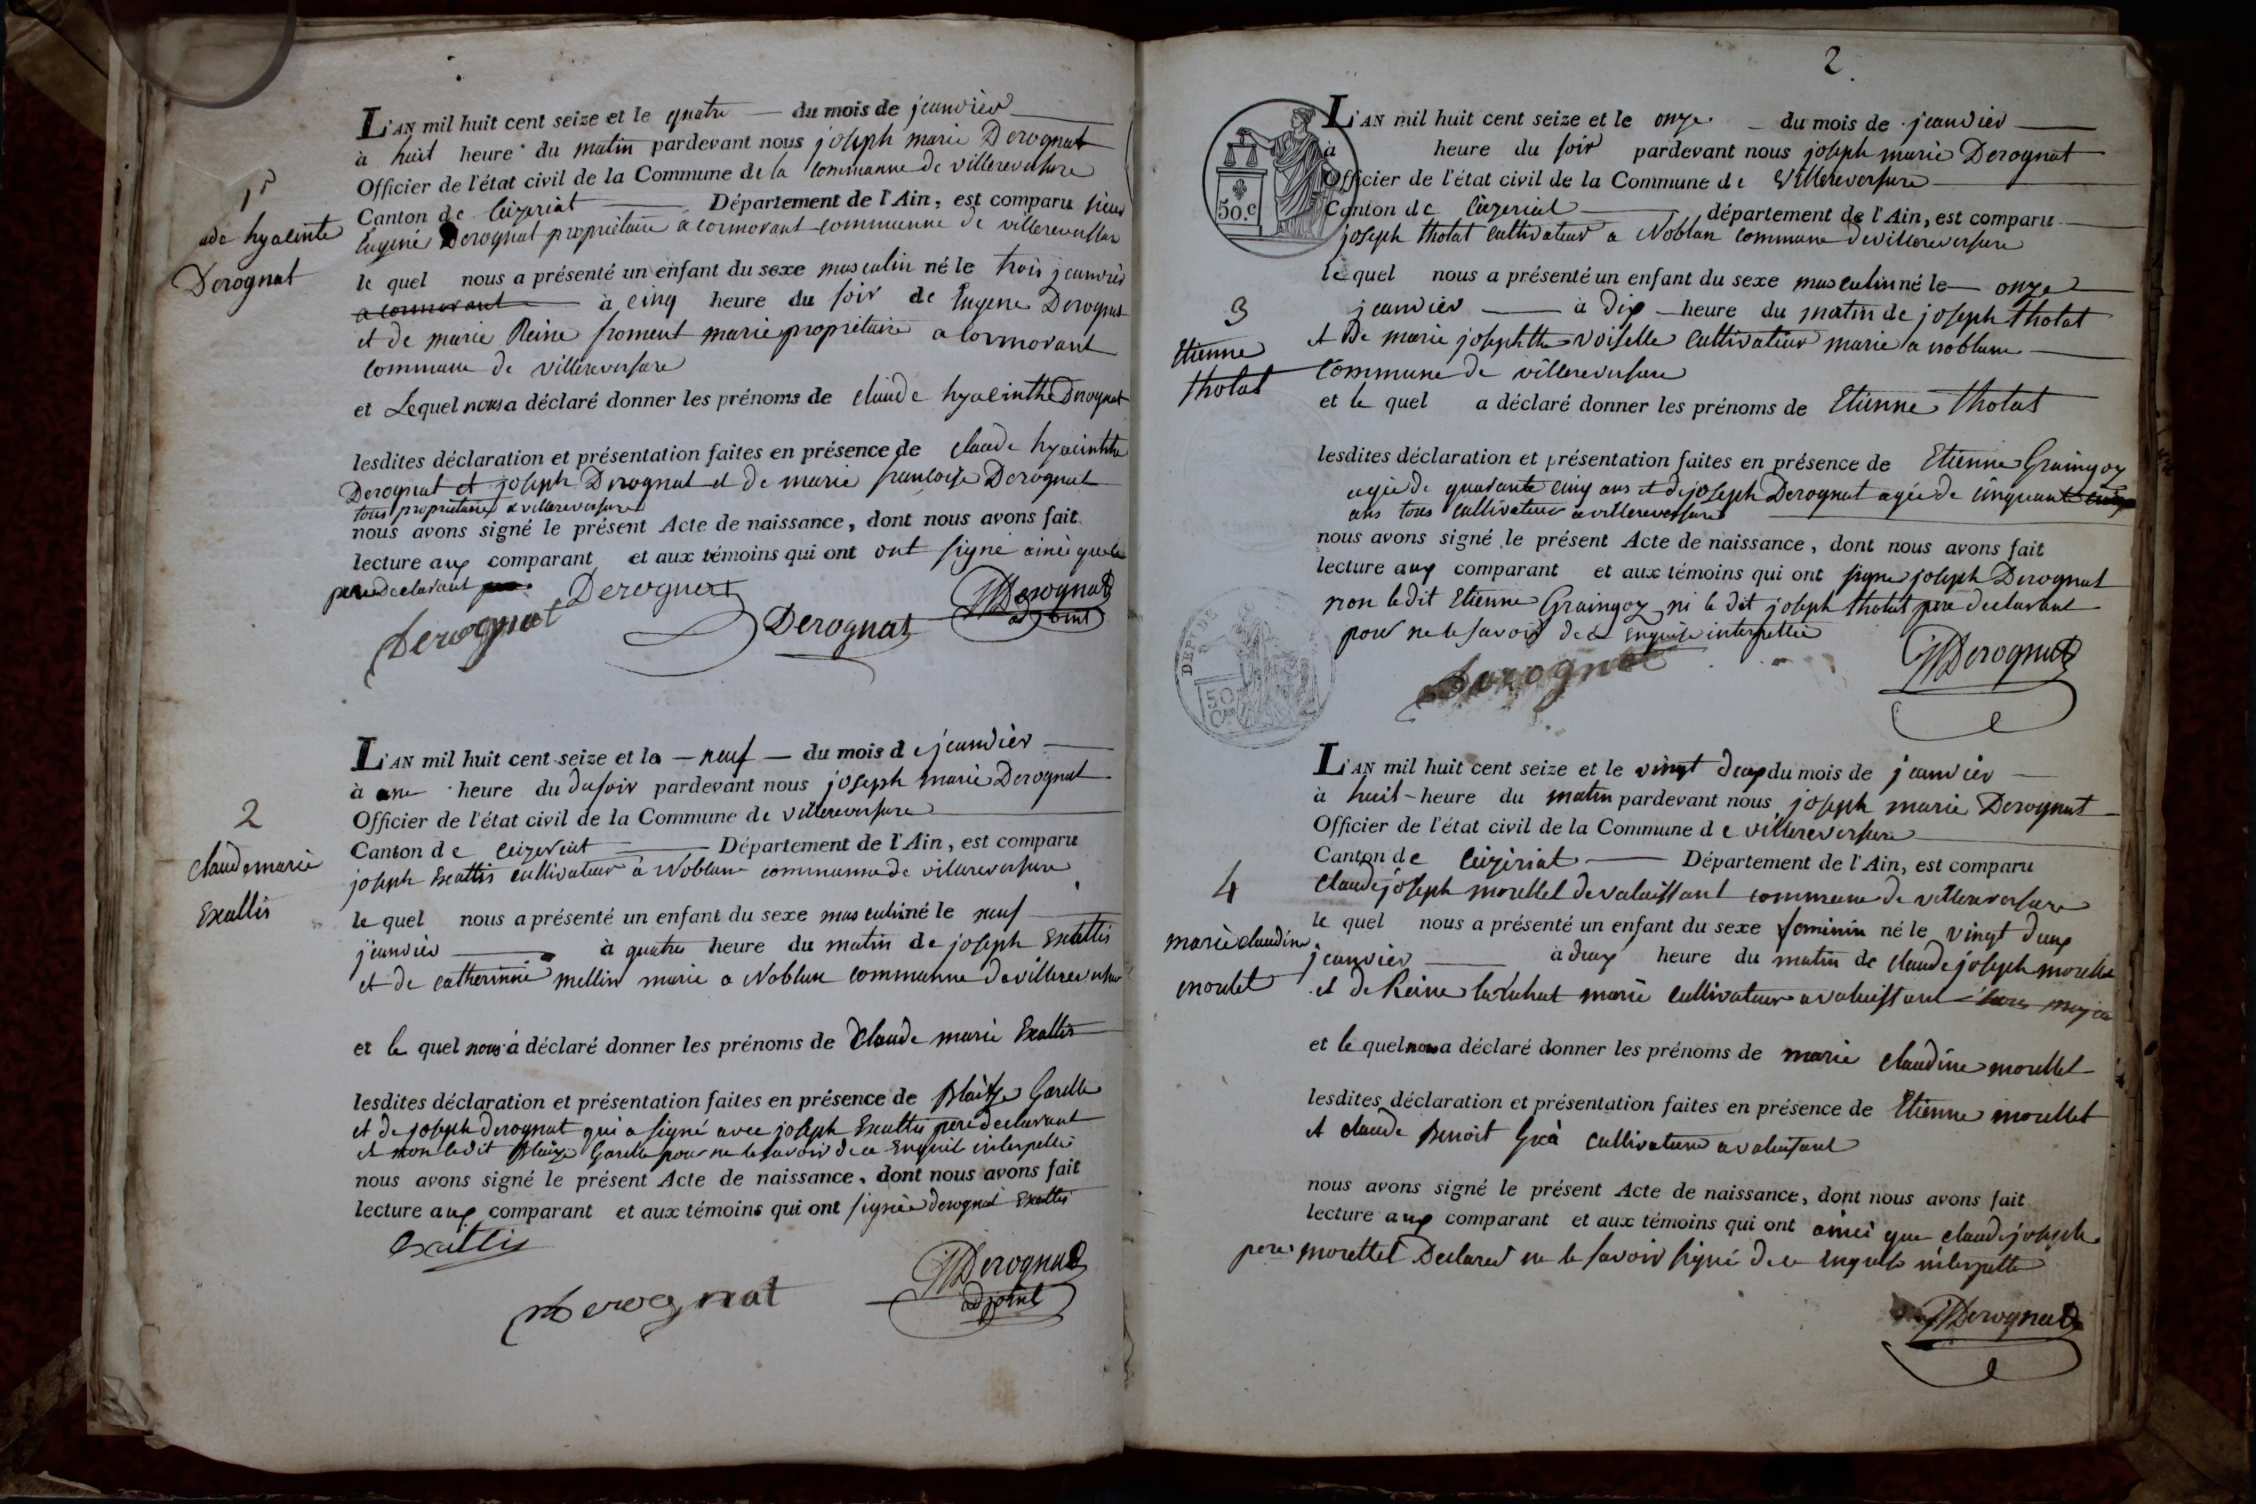 1r
ade hyacinte
Derognat
L'AN mil huit cent seize et le quatre du mois de jeanvier
à huit heure du matin pardevant nous joseph marie Derognat
Officier de l'état civil de la Commune de la commanne de villereversure
Canton de Ceizeriat Département de l'Ain, est comparu sieur
Eugene Derognat propriétaire a cormorant commune de villereversure
le quel nous a présenté un enfant du sexe masculin né le trois jeanvier
a cormorant à cinq heure du soir de Eugene Derognat
et de marie Reine froment marie propriétaire a Cormorant
commune de villereversure
et Lequel nous a déclaré donner les prénoms de claude hyacinthe Derognat
lesdites déclaration et présentation faites en présence de claude hyacinthe
Derognat et joseph Derognat et de marie francoise Derognat
tous propriétaires a villereversure
nous avons signé le présent Acte de naissance, dont nous avons fait
lecture aux comparant et aux témoins qui ont ont signé ainsi que le
pere declarant
Derognat Derognat Derognat JMDerognat
adjoint
2
Claude marie
Exallis
L'AN mil huit cent seize et le neuf du mois de jeanvier
à une heure du du soir pardevant nous joseph marie Derognat
Officier de l'état civil de la Commune de villereversure
Canton de Ceizeriat Département de l'Ain, est comparu
joseph Exallis cultivateur a Noblanc commanne de villereversure
le quel nous a présenté un enfant du sexe masculin né le neuf
jeanvier à quatre heure du matin de joseph Exallis
et de catherinne mellin marie a Noblanc commanne de villereversure
et le quel nous a déclaré donner les prénoms de Claude marie Exallis
lesdites déclaration et présentation faites en présence de Blaize Garelle
et de joseph derognat qui a signé avec joseph Exallis pere declarant
et non le dit Blaize Garelle pour ne le savoir de ce Enquit interpellé
nous avons signé le présent Acte de naissance, dont nous avons fait
lecture aux comparant et aux témoins qui ont signée derognat Exallis
Exallis
Derognat
JMDerognat
adjoint
2
50.c
3
Etienne
tholat
L'AN mil huit cent seize et le onze du mois de jeanvier
à heure du soir pardevant nous joseph marie Derognat
Officier de l'état civil de la Commune de Villereversure
Canton de Ceizeriat département de l'Ain, est comparu
joseph tholat cultivateur a Noblan commune de villereversure
le quel nous a présenté un enfant du sexe masculin né le onze
jeanvier à dix heure du matin de joseph tholat
et De marie josephthe voiselle cultivateur marie a noblanc
Commune de villereversure
et le quel a déclaré donner les prénoms de Etienne tholat
lesdites déclaration et présentation faites en présence de Etienne Graingoy
agée de quarante cinq ans et de joseph Derognat agée de cinquante
ans tous cultivateur a villereversure
nous avons signé le présent Acte de naissance, dont nous avons fait
lecture aux comparant et aux témoins qui ont signe joseph Derognat
non le dit Etienne Graingoy ni le dit joseph tholat pere declarant
pour ne le savoir de ce enquise interpellée
Derognat
JMDerognat
DEPT DE
50
4
marie claudine
morelet
L'AN mil huit cent seize et le vingt deux du mois de jeanvier
à huit heure du matin pardevant nous joseph marie Derognat
Officier de l'état civil de la Commune de villereversure
Canton de Ceizeriat Département de l'Ain, est comparu
Claude joseph morellet de valuissant commune de villereversure
le quel nous a présenté un enfant du sexe feminin né le vingt deux
jeanvier à deux heure du matin de claude joseph morellet
et de Reine marie cultivateur a valuissant
et le quel nous a déclaré donner les prénoms de marie claudine morellet
lesdites déclaration et présentation faites en présence de Etienne morellet
et claude Benoit cultivateur a valuissant
nous avons signé le présent Acte de naissance, dont nous avons fait
lecture aux comparant et aux témoins qui ont ainsi que claude joseph
morellet pere Declarer ne le savoir signé de ce enquis interpelle
JMDerognat